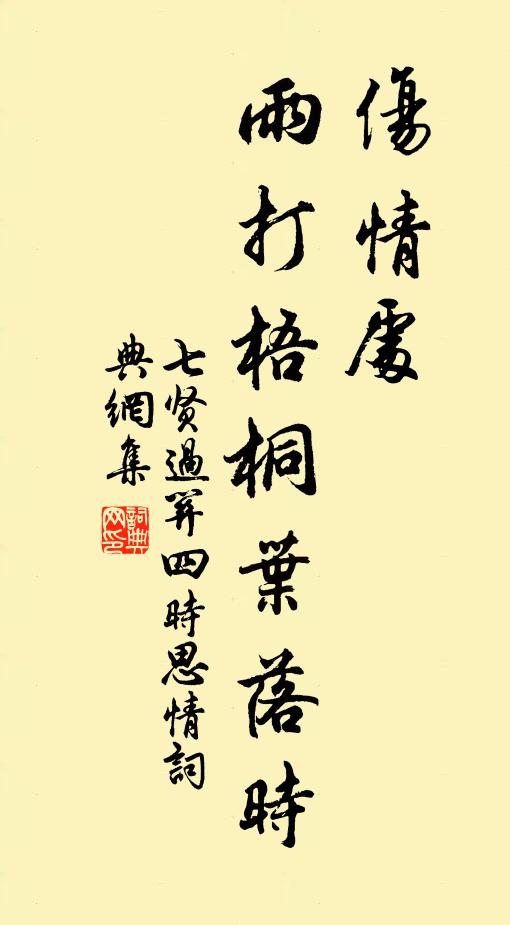 傷情處
雨打梧桐葉落時
七贤過関四時思情詞
典網集
詞典网印